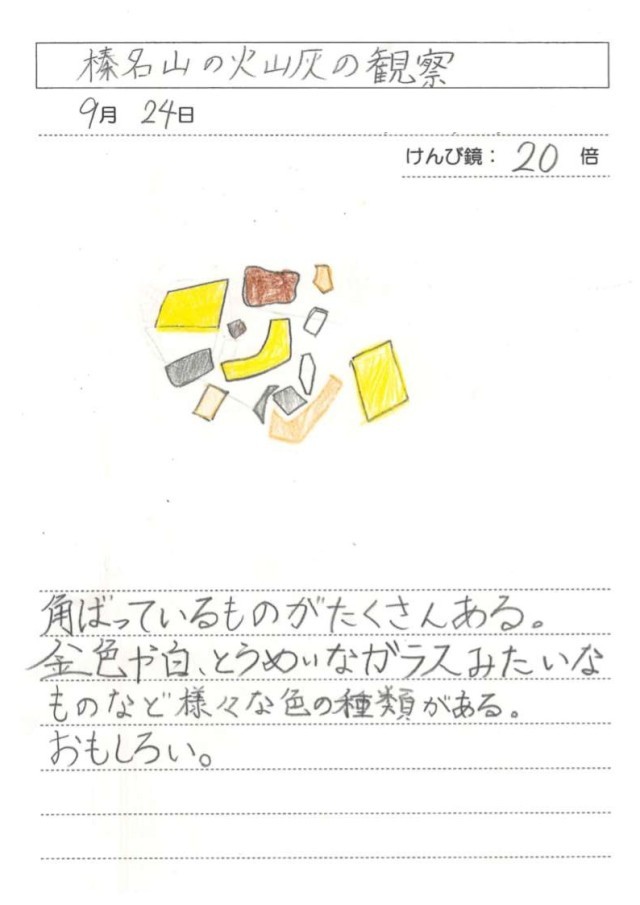 榛名山の火山灰の観察
9月 24日
けんび鏡： 20 倍
角ばっているものがたくさんある。
金色や白、とうめいなガラスみたいな
ものなど様々な色の種類がある。
おもしろい。